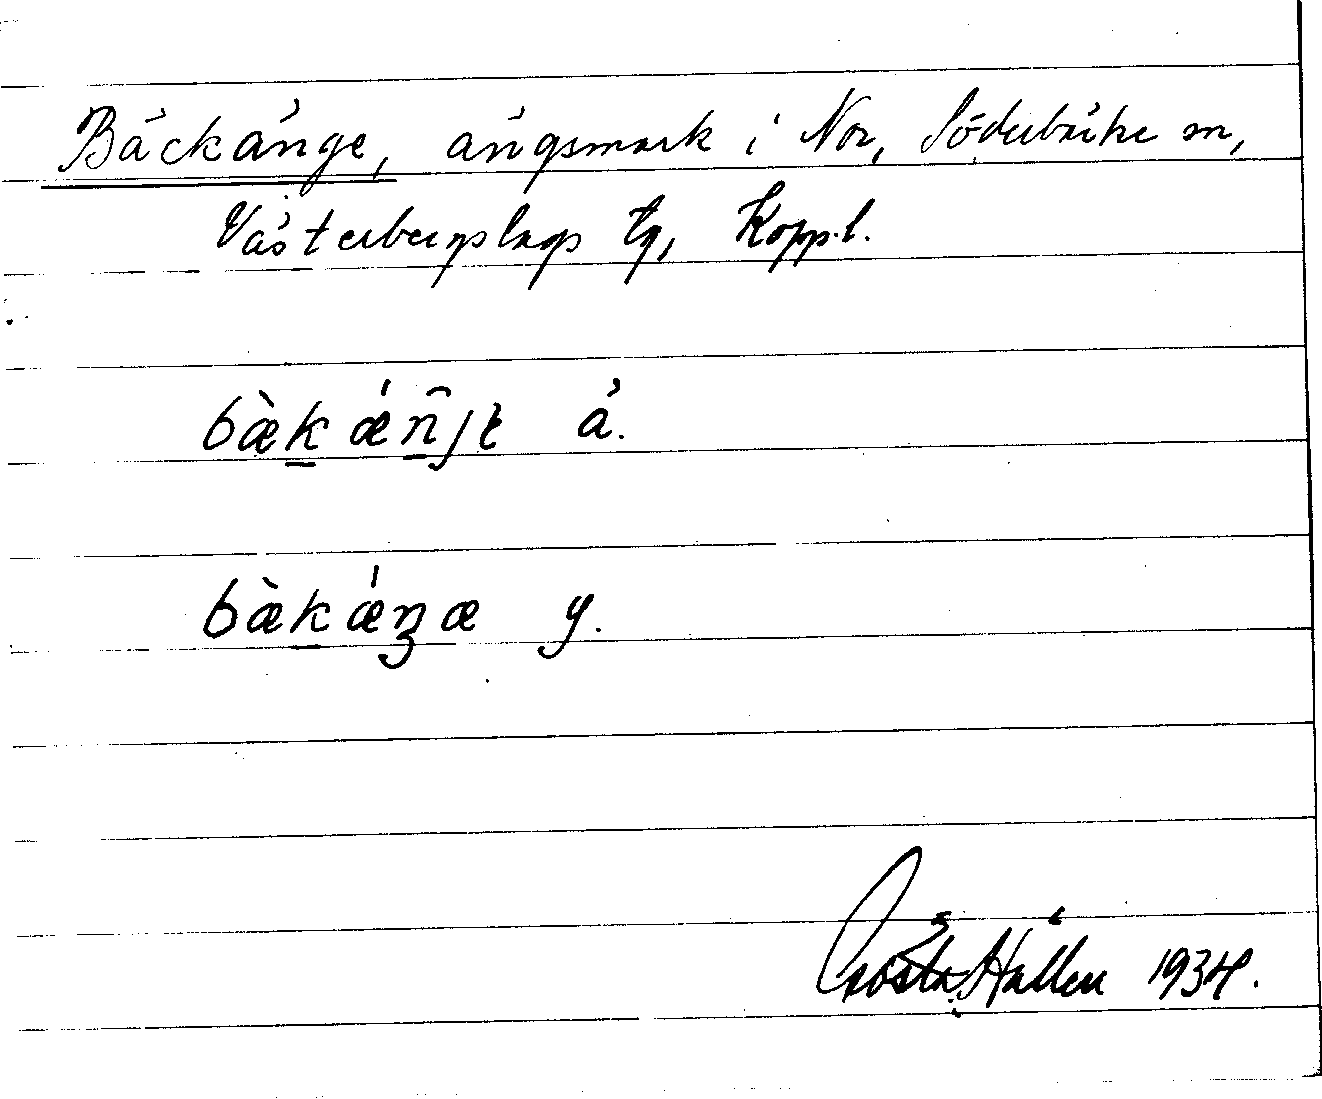 Bäckänge, ängsmark i Nor, Söderbärke sn,
Västerbergslags tg, Kopp.l.
bæ̀kǽn̂jɛ ä.
bæ̀kǽŋæ y.
Gösta Hållen 1934.